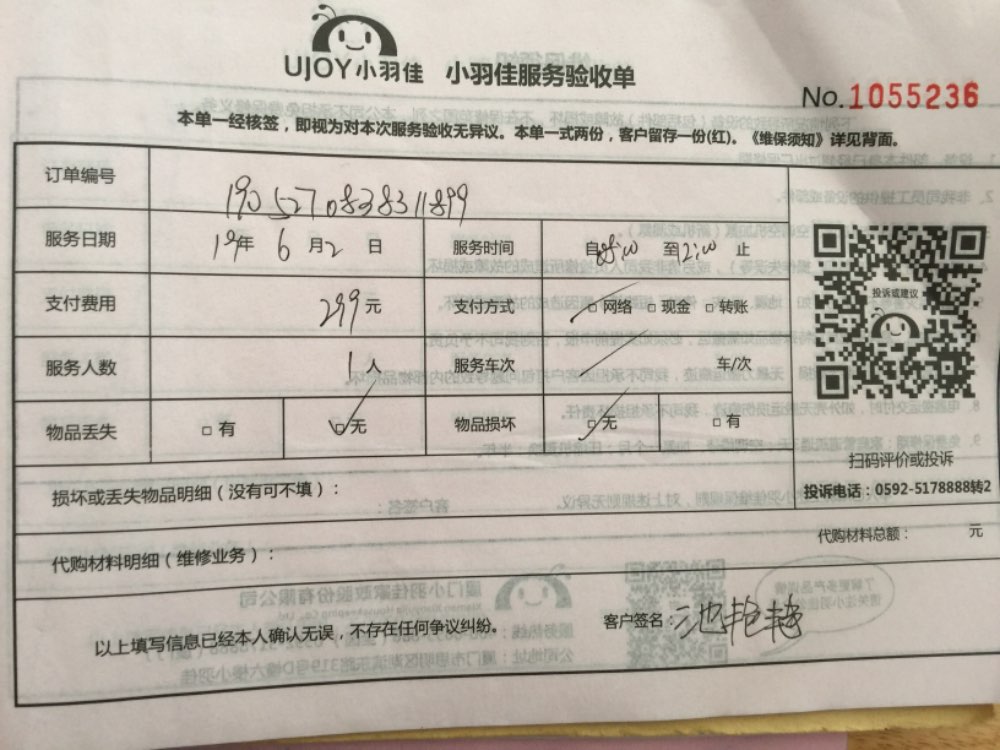 UJOY小羽佳 小羽佳服务验收单
No.1055236
本单一经核签，即视为对本次服务验收无异议。本单一式两份，客户留存一份(红)。《维保须知》详见背面。
订单编号 190527083831899
服务日期 19年 6 月 2 日 服务时间 自8:00 至12:00 止
支付费用 299元 支付方式 网络 现金 转账
投诉或建议
服务人数 1人 服务车次 车/次
物品丢失 有 无 物品损坏 无 有
扫码评价或投诉
损坏或丢失物品明细（没有可不填）：
投诉电话：0592-5178888转2
代购材料明细（维修业务）：
代购材料总额： 元
以上填写信息已经本人确认无误，不存在任何争议纠纷。
客户签名：